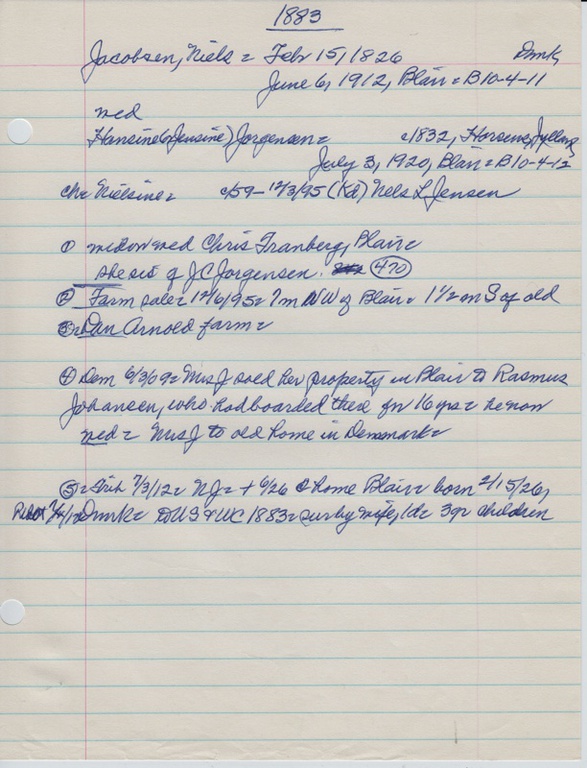 1883
Jacobsen, Niels = Feb 15, 1826 Dmk
June 6, 1912, Blair = B10-4-11
med
Hansine (Jensine) Jorgensen = c1832, Horsens, Jylland
July 3, 1920, Blair = B10-4-12
ch = Nielsine = c/59 - 12/3/95 (Kd) Nels L Jensen
① widow med Chris Tranberg, Blair =
she sis of J C Jorgensen. 470
② Farm sale = 12/6/95 = 7m NW of Blair = 1½ m S of old
③ = Dan Arnold farm =
④ Dem 6/3/09 = Mrs J sold her property in Blair to Rasmus
Johansen, who had boarded there for 16 yrs = he now
med = Mrs J to old home in Denmark =
⑤ = Trib 7/3/12 = NJ = + 6/26 @ home Blair = born 2/15/26,
Dmrk = DUS & WC 1883 = sur by wife, 1d = 3 gr children